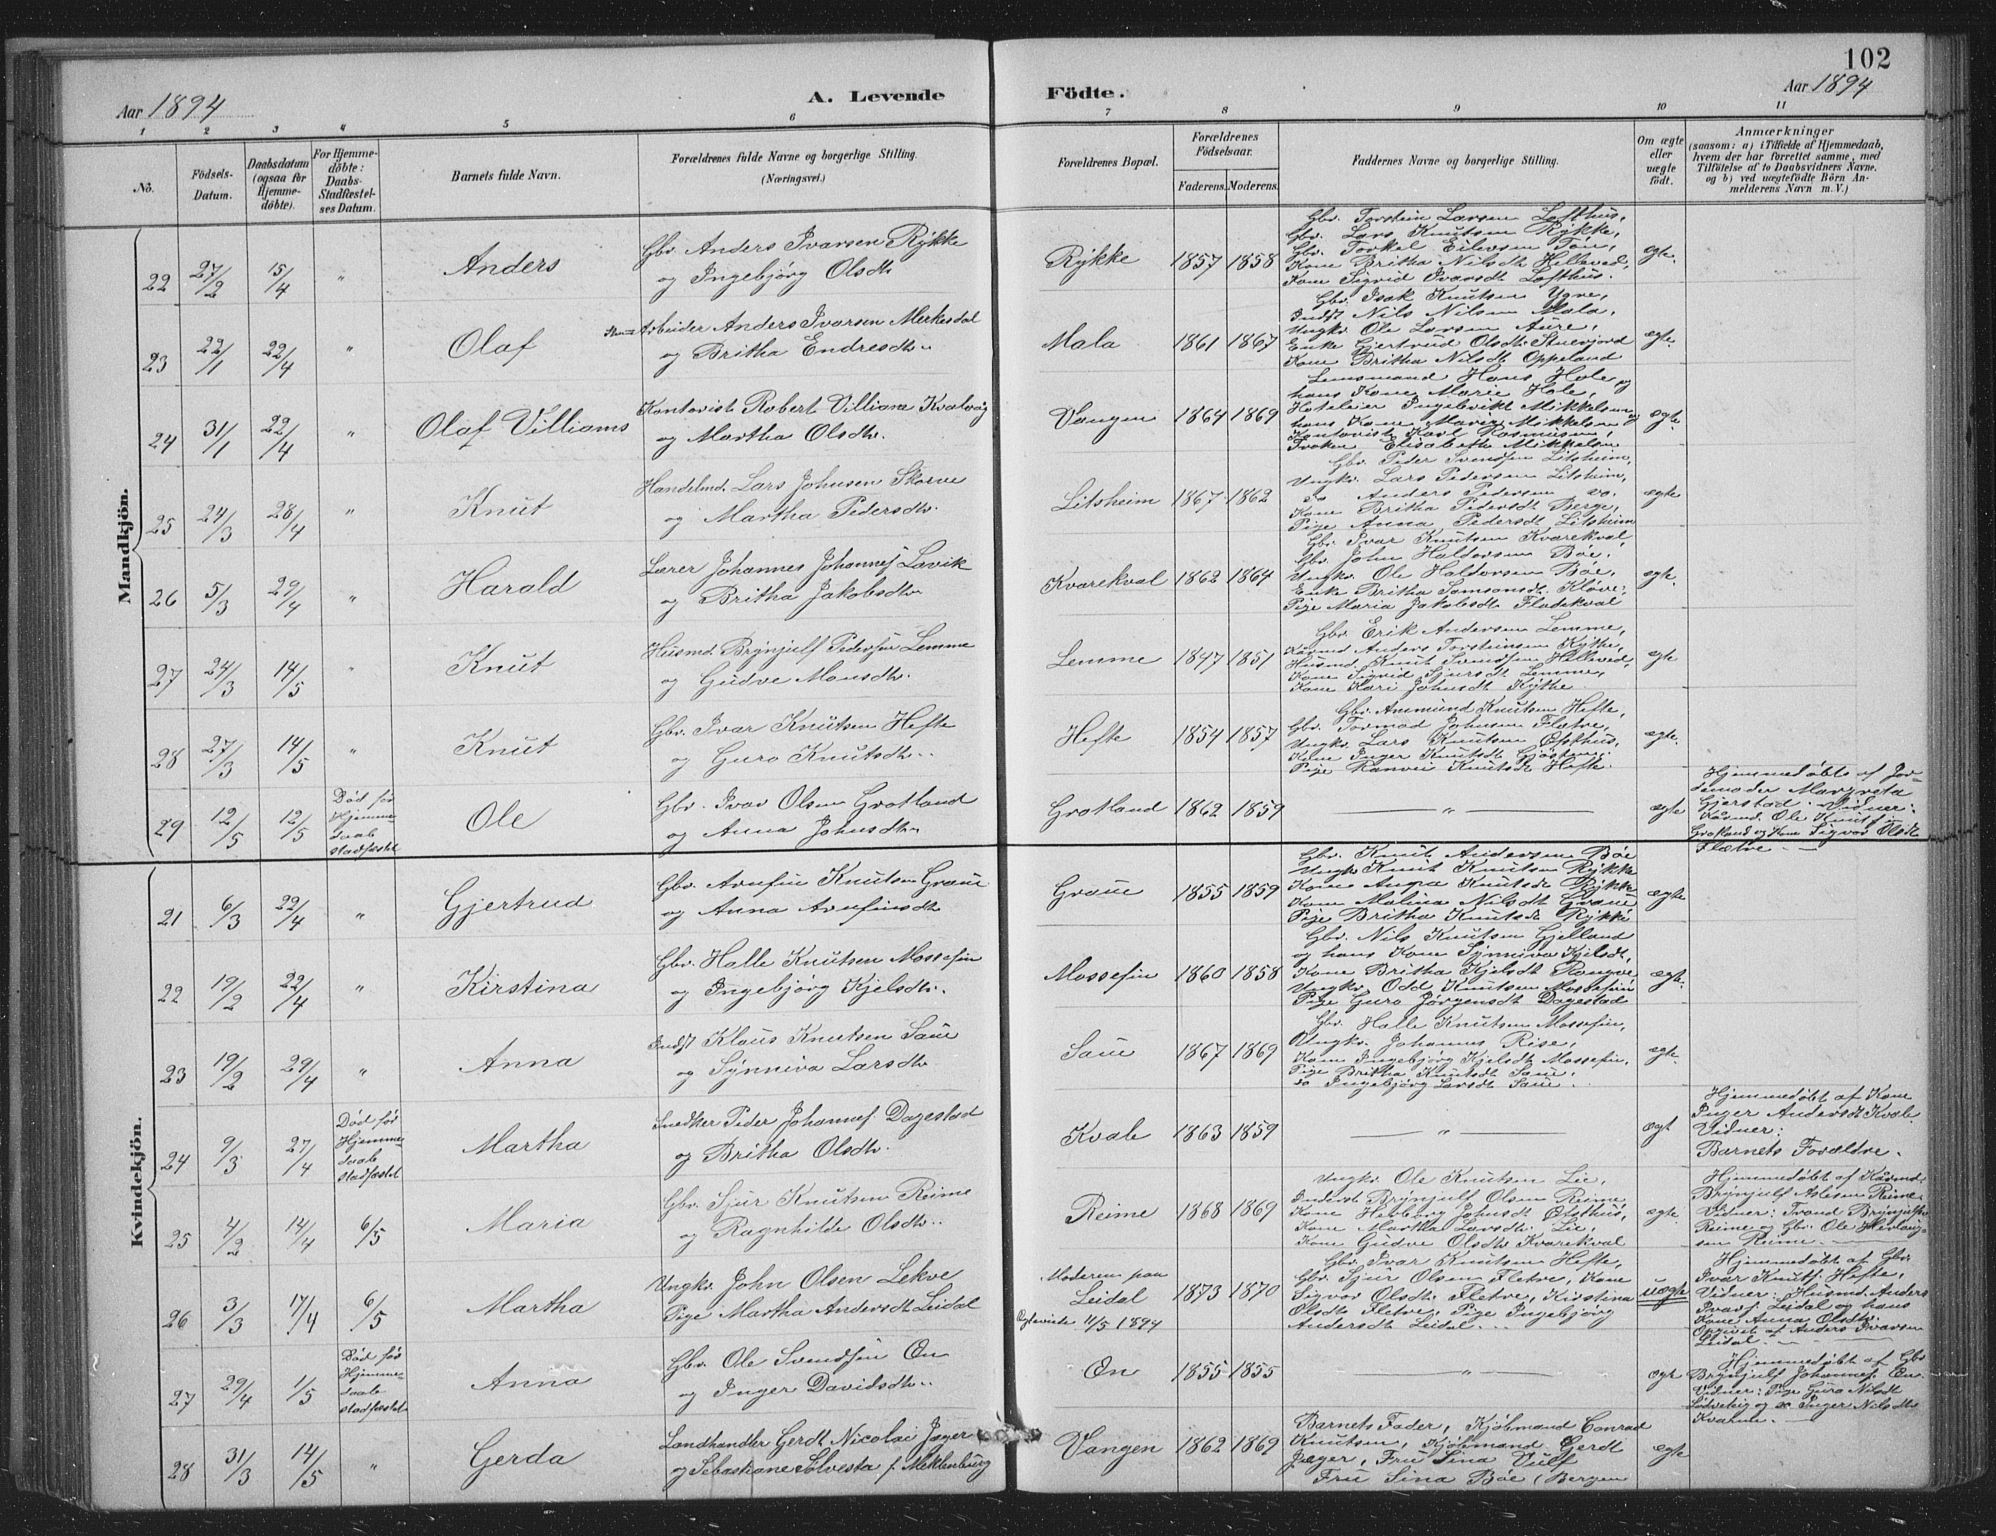 102
Aar 1894
A. Levende
Födte.
Aar 1894
1 2 3 4 5 6 7 8 9 10 11
No.
Födsels-
Datum.
Daabsdatum
(ogsaa for
Hjemme-
döbte).
For Hjemme-
döbte:
Daabs-
Stadfæstel-
ses Datum.
Barnets fulde Navn.
Forældrenes fulde Navne og borgerlige Stilling.
(Næringsvei.)
Forældrenes Bopæl.
Forældrenes
Födselsaar.
Faderens. Moderens.
Faddernes Navne og borgerlige Stilling.
Om ægte
eller
uægte
födt.
Anmærkninger
(saasom: a) i Tilfælde af Hjemmedaab,
hvem der har forrettet samme, med
Tilföielse af to Daabsvidners Navne,
og b) ved uægtefödte Börn An-
melderens Navn m. V.)
Mandkjön.
22 27/2 15/4 " Anders
Gbr. Anders Ivarsen Rykke
og Ingebjörg Olsdtr.
Rykke 1857 1858
Gbr. Torstein Larsen Lofthus,
Gbr. Lars Knutsen Rykke,
Gbr. Torkel Eilevsen Tön,
Kone Britha Nilsdt Helleved,
Kone Sigrid Ivarsdt Lofthus.
egte.
23 22/1 22/4 " Olaf
Arbeider Anders Ivarsen Merkesdal
og Britha Endresdtr.
Mala 1861 1867
Gbr. Isak Knutsen Ygre,
Indst Nils Nilsen Mala,
Ungkr. Ole Larsen Aure,
Enke Gjertrud Olsdtr.
Kone Britha Nilsdt Oppeland
egte.
24 31/1 22/4 " Olaf Villiams
Kontorist Robert Villiam Kvalvåg
og Martha Olsdtr.
Vangen 1864 1869
Lensmand Hans Hole, og
hans Kone Marie Hole,
Hoteleier Ingebrikt Mikkelsen og
hans Kone Maria Mikkelsen
Kontorist Karl Rasmussen,
Frøken Elisabeth Mikkelsen
egte.
25 24/3 28/4 " Knut
Handelmd. Lars Johnsen Skorve
og Martha Pedersdtr.
Litsheim 1867 1862
Gbr. Peder Svendsen Litsheim,
Ungkr. Lars Pedersen Litsheim,
do Anders Pedersen do.
Kone Britha Pedersdt Berge,
Pige Anna Pedersdt Litsheim
egte
26 5/3 29/4 " Harald
Lærer Johannes Johannes. Lavik
og Britha Jakobsdtr.
Kvarekval 1862 1864
Gbr. Ivar Knutsen Kvarekval,
Gbr. John Haldorsen Böe,
Ungkr. Ole Haldorsen Böe,
Enke Britha Samsonsdt. Klöve,
Pige Maria Jakobsdt Fladekval
egte.
27 24/3 14/5 " Knut
Husmd. Brynjulf Pedersen Lemme
og Gudve Monsdtr.
Lemme 1847 1851
Gbr. Erik Andersen Lemme,
Anders Torsteinsen Kythe,
Husmd Knut Svendsen Helleved,
Kone Sigrid Sjursdt Lemme,
Kone Kari Johnsdt Kythe
egte
28 27/3 14/5 " Knut
Gbr. Ivar Knutsen Hefte
og Guro Knutsdtr.
Hefte 1854 1857
Gbr. Ammund Knutsen Hefte,
Gbr. Tormod Johnsen Fletre,
Ungkr. Lars Knutsen Ofsthus,
Kone Inger Knutsdt
Pige Ranvei Knutsdt Hefte.
egte.
29 12/5 12/5
Död før
Hjemme-
daab
stadfæstet
Ole
Gbr. Ivar Olsen Grotland
og Anna Johnsdtr.
Grotland 1862 1859
"
egte
Hjemmedöbte af Jor-
demoder Margreta
Gjerstad. Vidner:
Ole Knutsen
Grotland og Kone Sigvor Olsdt
Flætre.
Kvindekjön.
21 6/3 22/4 " Gjertrud
Gbr. Arnfin Knutsen Graue
og Anna Arnfinsdtr
Graue 1855 1859
Gbr. Knut Andersen Böe
Ungkr Knut Knutsen Rykke
Kone Anna Knutsdt Rykke
Kone Malina Nilsdt Graue
Pige Britha Knutsdt Rykke
egte
22 19/2 22/4 " Kirstina
Gbr. Halle Knutsen Mossefin
og Ingebjörg Kjelsdtr.
Mossefin 1860 1858
Gbr. Nils Knutsen Gjelland
og hans Kone Synniva Kjelsdt,
Kone Britha Kjelsdt Rongve
Ungkr. Odd Knutsen Mossefin
Pige Guro Jörgensdt Dagestad
egte.
23 19/2 29/4 " Anna
Indst Klaus Knutsen Saue
og Synniva Larsdtr
Saue 1867 1869
Gbr. Halle Knutsen Mossefin,
Ungkr. Johannes Rise,
Kone Ingebjörg Kjelsdt Mossefin,
Pige Britha Knutsdt Saue,
do Ingebjörg Larsdt Saue.
egte.
24 9/3 27/4
Död før
Hjemme-
daab
stadfæstet
Martha
Snedker Peder Johannes. Dagestad
og Britha Olsdtr.
Kvale 1863 1859
"
egt
Hjemmedöbt af Kone
Inger Andersdt Kvale
Vidner:
Barnets Forældre.
25 4/2 14/4 6/5 Maria
Gbr. Sjur Knutsen Reime
og Ragnhilde Olsdtr.
Reime 1868 1869
Ungkr Ole Knutsen Lie,
Inderst Brynjulf Olsen Reime,
Kone Herborg Johnsdt Ofsthus,
Kone Martha Larsdtr. Lie,
Kone Gudve Olsdtr Kvarekval
egte.
Hjemmedöbt af
Brynjulf Aslesen Reime
Vidner: Trond Brynjulfsen
Reime og Gbr. Ole
Reime.
26 3/3 17/4 6/5 Martha
Ungkr. John Olsen Lekve
Pige Martha Andersdt Leidal
Moderen paa
Leidal
Egteviede 11/5 1894
1873 1870
Gbr. Ivar Knutsen Hefte,
Gbr. Sjur Olsen Fletre, Kone
Sigvor Olsdtr. Fletre, Kirstina
Olsdt Fletre, Pige Ingebjörg
Andersdt Leidal.
uegte
Hjemmedöbt af Gbr.
Ivar Knuts. Hefte,
Vidner: Husmd. Anders
Ivars. Leidal og hans
Kone Anna Olsdtr.
Opgivet af Anders Ivarsen
Leidal
27 29/4 1/5
Död før
Hjemme-
daab
stadfæstet
Anna
Gbr. Ole Svendsen Øn
og Inger Davidsdtr.
Øn 1855 1855
"
egt
Hjemmedöbt af Gbr
Brynjulf Johannes. Øn
Vidner: Pige Guro Nilsdt
og do Inger Nilsdt
28 31/3 14/5 " Gerda
Landhandler Gerdt Nicolai Jæger
og Sebastiane Sølvesta f. Meklenburg
Vangen 1862 1869
Barnets Fader, Kjöbmand Conrad
Knutsen, Kjöbmand Gerdt
Jæger, Fru Lina Vulf
Fru Sina Böe (Bergen
egte